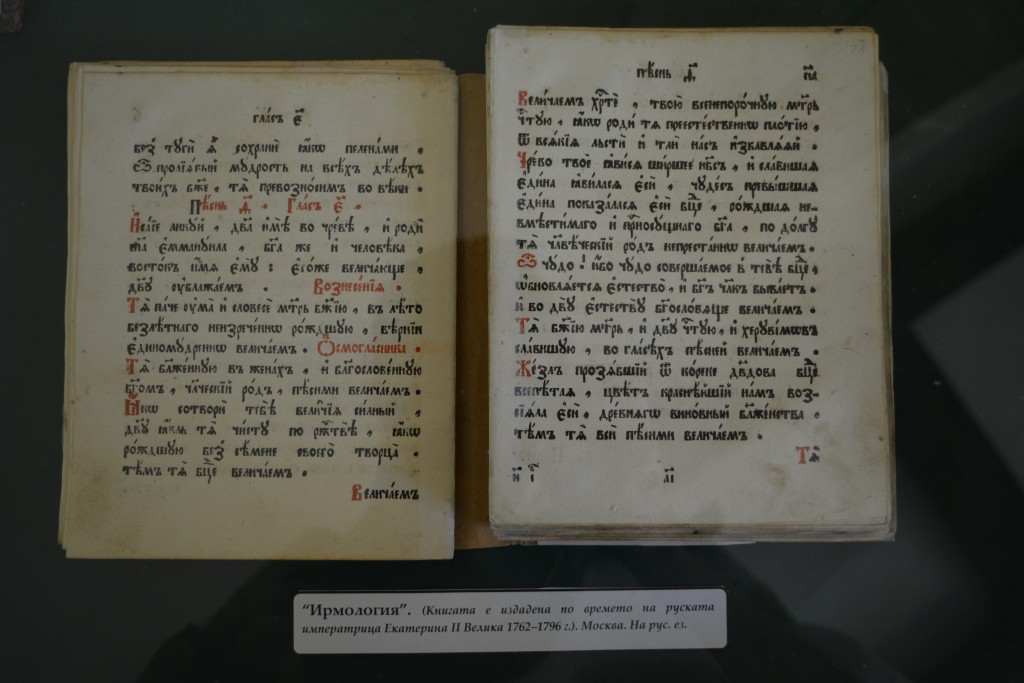 гла́съ є҃
без̾ тꙋгѝ ꙗ҆̀ сохранѝ ꙗ҆́кѡ пеленамѝ ,
мꙋдрость на всѣ́хъ дѣ́лѣхъ
твои́хъ бж҃е , тѧ̀ превозно́симъ во вѣ́ки .
Пѣ́снь д҃ . Гла́съ є҃ .
И҆са́їе ликꙋ́й , дв҃а и҆мѣ̀ во чре́вѣ , и҆ родѝ
сн҃а є҆мманꙋ́ила , бг҃а же и҆ человѣ́ка ,
восто́къ и҆́мѧ є҆мꙋ̀ : є҆го́же велича́юще ,
дв҃ꙋ ᲂу҆блажа́емъ . Вознесе́нїѧ .
Тѧ̀ па́че ᲂу҆ма̀ и҆ словесѐ мт҃рь бж҃їю , въ лѣ́то
безлѣ́тнаго неизрече́ннѡ ро́ждшꙋю , вѣ́рнїи
є҆диномꙋ́дреннѡ велича́емъ . Ѻ҆смогла́сника .
Тѧ̀ бл҃же́ннꙋю въ жена́хъ , и҆ благослове́ннꙋю
бг҃омъ , чл҃ческїй ро́дъ , пѣ́сньми велича́емъ .
Ꙗ҆́кѡ сотворѝ тебѣ̀ вели́чїѧ си́льный ,
дв҃ꙋ ꙗ҆́вль тѧ̀ чи́стꙋ по рж҃твѣ̀ , ꙗ҆́кѡ
ро́ждшꙋю без̾ сѣ́мене своего̀ творца̀ .
тѣ́мъ тѧ̀ бц҃е велича́емъ .
Велича́емъ
пѣ́снь д҃
Велича́емъ хрⷭ҇тѐ , твою̀ всенепоро́чнꙋю мт҃рь
чⷭ҇тꙋю , ꙗ҆́кѡ родѝ тѧ̀ преестественнѡ пло́тїю ,
ѿ всѧ́кїѧ льстѝ и҆ тлѝ на́съ и҆збавлѧ́ѧй .
Чре́во твоѐ ꙗ҆ви́сѧ ши́ршее нб҃съ , и҆ сла́вншаѧ
є҆ди́на ꙗ҆ви́ласѧ є҆сѝ , чꙋде́съ превы́шшаѧ
є҆ди́на показа́ласѧ є҆сѝ бц҃е , ро́ждшаѧ не-
вмѣсти́маго и҆ присносꙋ́щнаго бг҃а , по до́лгꙋ
тѧ̀ чл҃вѣ́ческїй ро́дъ непреста́ннѡ велича́емъ .
Ѽ чꙋ́до ! и҆́бо чꙋ́до соверша́емое в̾ тебѣ̀ бц҃е ,
ѡ҆бновлѧ́етсѧ є҆стество̀ , и҆ бг҃ъ чл҃къ быва́етъ .
и҆ во двꙋ̀ є҆стествꙋ̀ бг҃осло́вѧще велича́емъ .
Тѧ̀ бж҃їю мт҃рь , и҆ дв҃ꙋ чⷭ҇тꙋю , и҆ херꙋві́мѡвъ
сла́внѣйшꙋю , во гласѣ́хъ пѣ́сней велича́емъ .
Же́злъ прозѧ́бшїй ѿ ко́рене дв҃дова бц҃е
всепѣ́таѧ , цвѣ́тъ краснѣ́йшїй на́мъ воз-
сїѧ́ла є҆сѝ . дре́внѧгѡ вино́вный бл҃же́нства .
тѣ́мъ тѧ̀ всѝ пѣ́сньми велича́емъ .
Тѧ̀
“Ирмология”. (Книгата е издадена по времето на руската
императрица Екатерина II Велика 1762–1796 г.). Москва. На рус. ез.